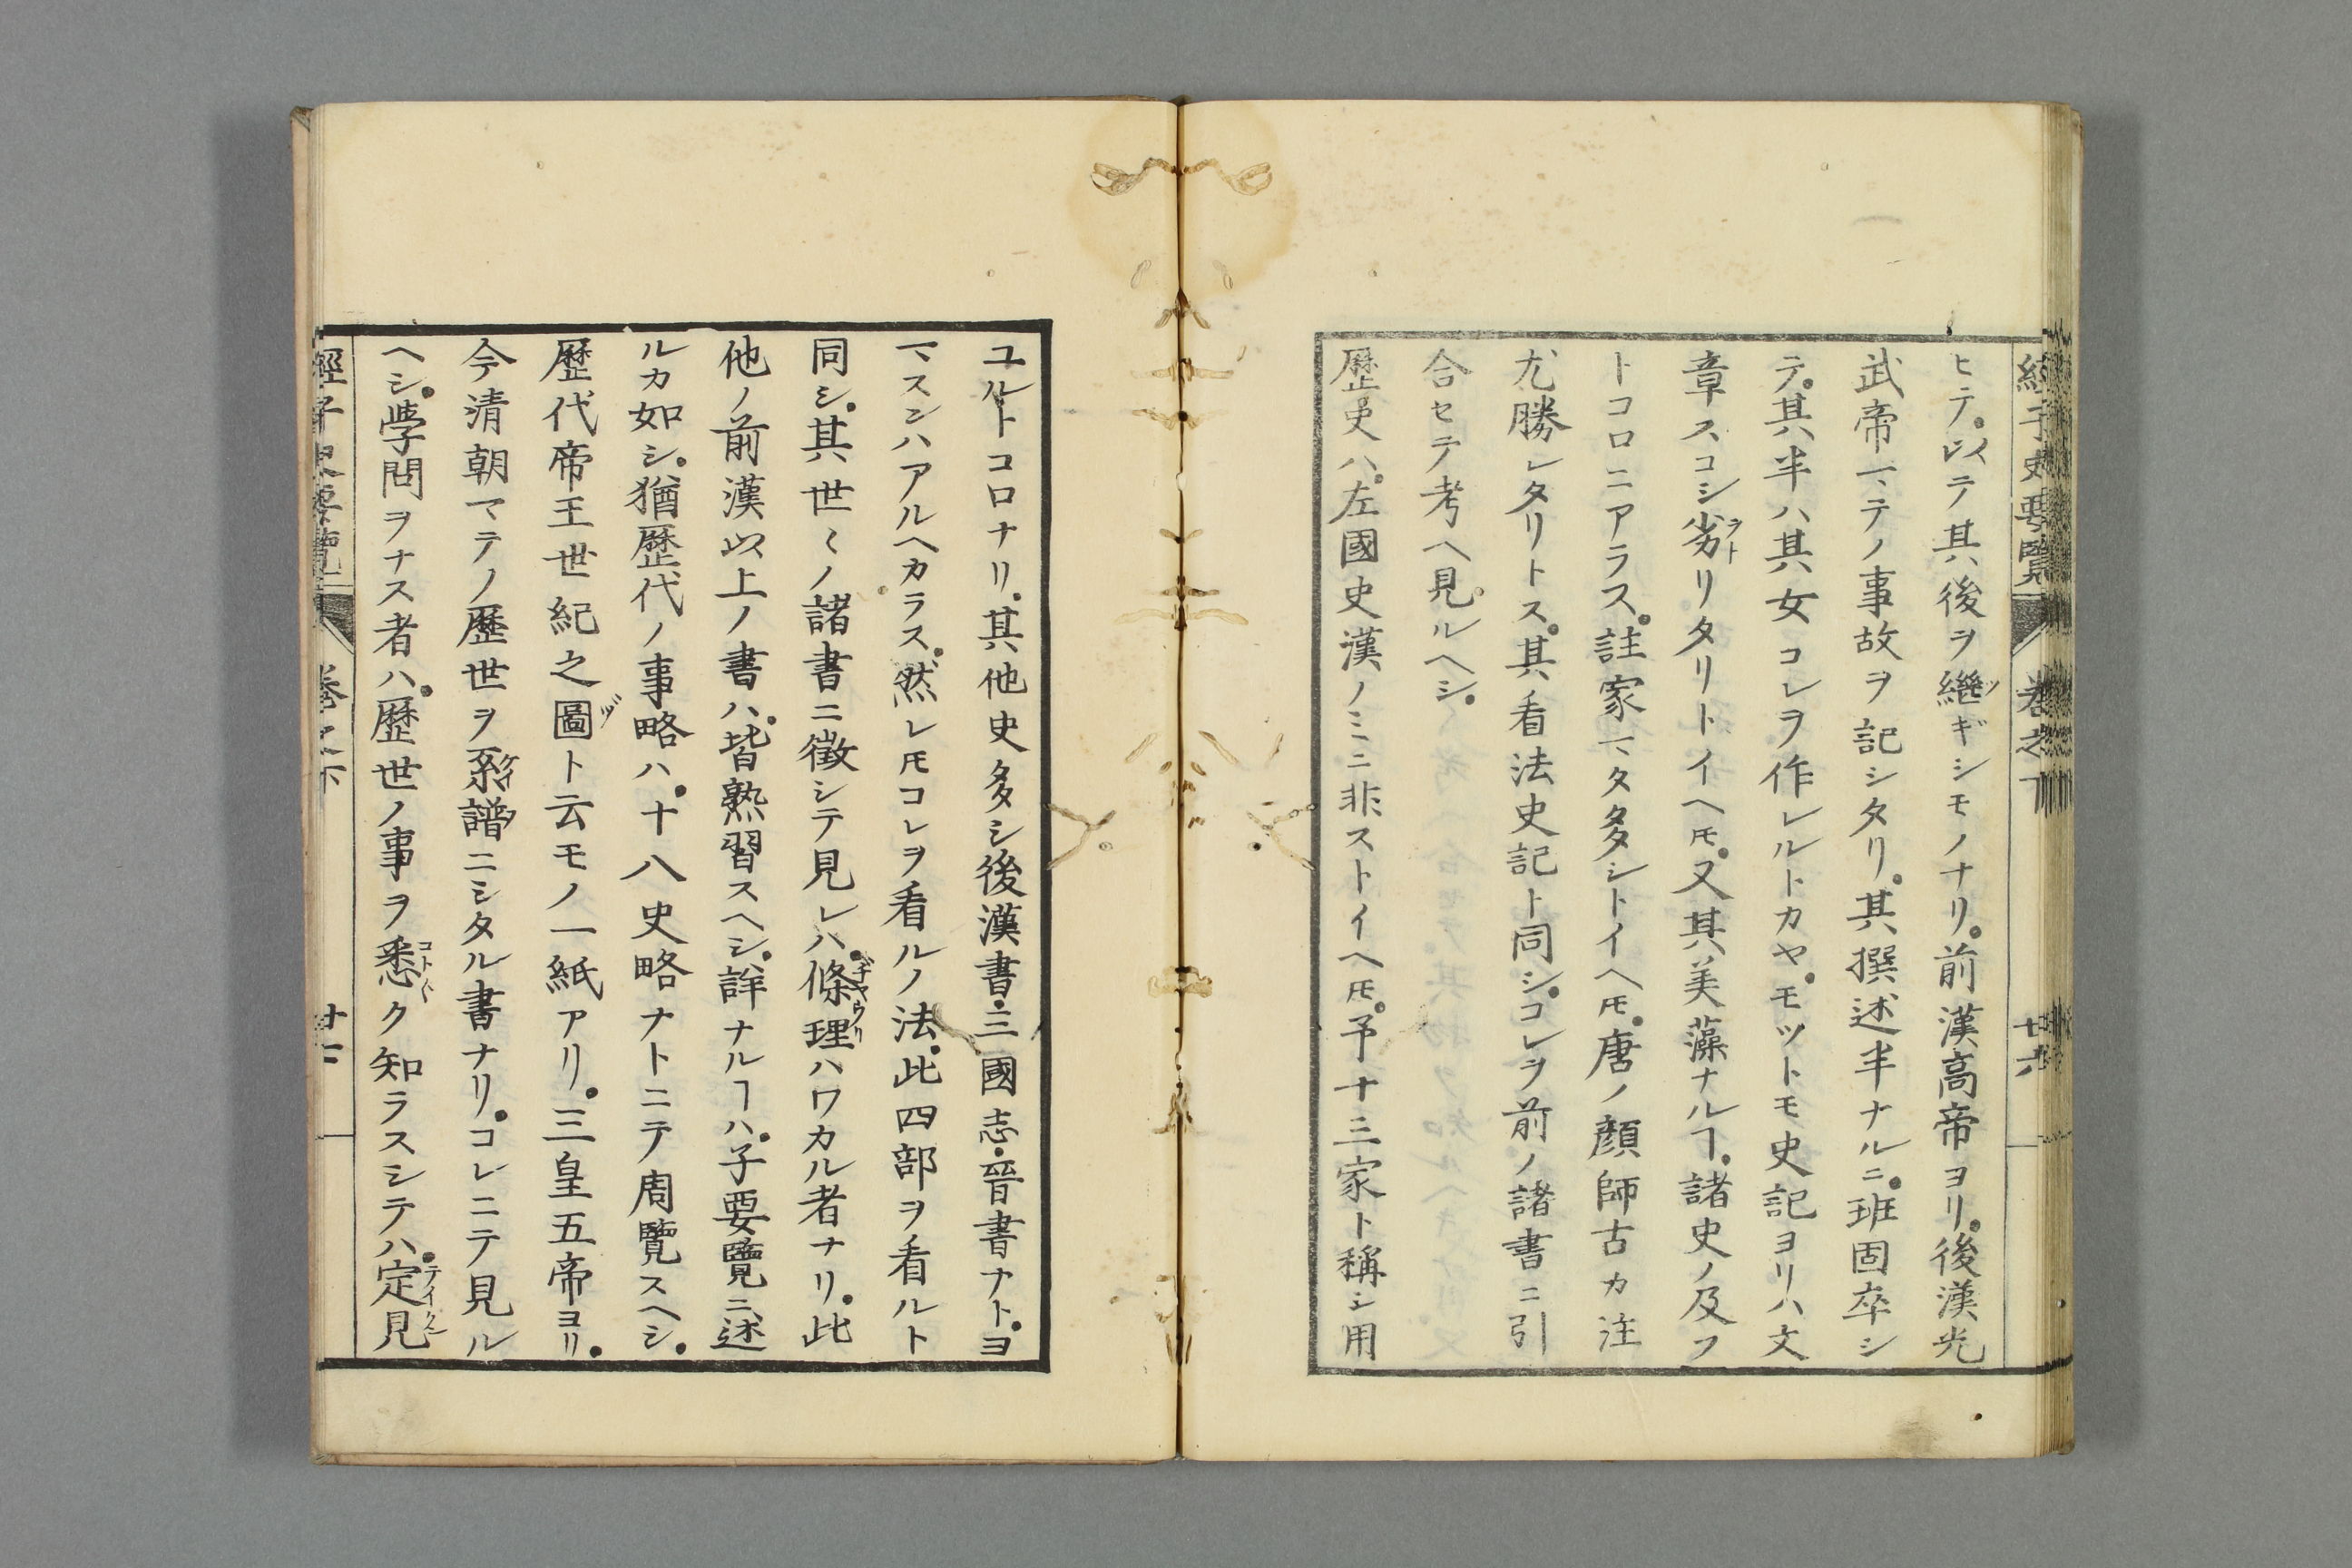 經子史要覽 卷之下 廿六
ヒテ。以テ其後ヲ繼ギシモノナリ。前漢高帝ヨリ。後漢光
武帝マテノ事故ヲ記シタリ。其撰述半ナルニ。班固卒シ
テ。其半ハ其女コレヲ作レルトカヤ。モツトモ史記ヨリハ文
章スコシ劣リタリトイヘ𪜈。又其美藻ナルヿ。諸史ノ及フ
トコロニアラス。註家マタ多シトイヘ𪜈。唐ノ顏師古カ注
尤勝レタリトス。其看法史記ト同シ。コレヲ前ノ諸書ニ引
合セテ考ヘ見ルヘシ。
歷史ハ。左國史漢ノミニ非ストイヘ𪜈。予十三家ト稱シ用
ユルトコロナリ。其他史多シ後漢書・三國志・晉書ナト。ヨ
マスンハアルヘカラス。然レ𪜈コレヲ看ルノ法。此四部ヲ看ルト
同シ。其世〻ノ諸書ニ徵シテ見レハ。條理ハワカル者ナリ。此
他ノ前漢以上ノ書ハ。皆熟習スヘシ。詳ナルヿハ。子要覽ニ述
ルカ如シ。猶歷代ノ事略ハ。十八史略ナトニテ周覽スヘシ。
歷代帝王世紀之圖ト云モノ一紙アリ。三皇五帝ヨリ。
今清朝マテノ歷世ヲ系譜ニシタル書ナリ。コレニテ見ル
ヘシ。學問ヲナス者ハ。歷世ノ事ヲ悉ク知ラスシテハ。定見
經子史要覽 卷之下